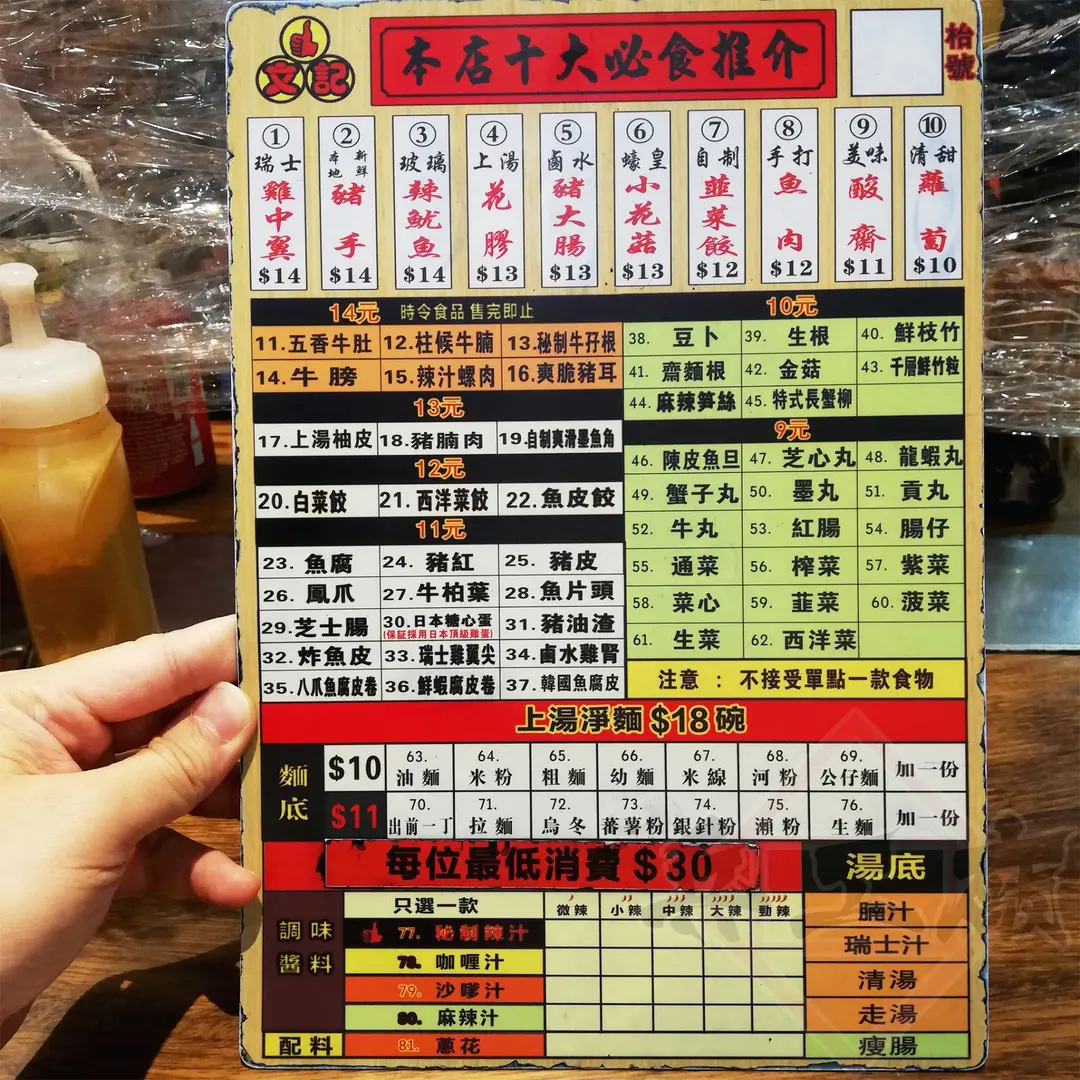 文記
本店十大必食推介
枱號
① 瑞士雞中翼 $14
② 本地新鮮豬手 $14
③ 玻璃辣魷魚 $14
④ 上湯花膠 $13
⑤ 鹵水豬大腸 $13
⑥ 蠔皇小花菇 $13
⑦ 自制韮菜餃 $12
⑧ 手打魚肉 $12
⑨ 美味酸齋 $11
⑩ 清甜蘿蔔 $10
14元 時令食品 售完即止
11.五香牛肚 12.柱候牛腩 13.秘制牛孖根
14.牛膀 15.辣汁螺肉 16.爽脆豬耳
13元
17.上湯柚皮 18.豬腩肉 19.自制爽滑墨魚角
12元
20.白菜餃 21.西洋菜餃 22.魚皮餃
11元
23.魚腐 24.豬紅 25.豬皮
26.鳳爪 27.牛柏葉 28.魚片頭
29.芝士腸 30.日本糖心蛋 31.豬油渣
(保証採用日本頂級雞蛋)
32.炸魚皮 33.瑞士雞翼尖 34.鹵水雞腎
35.八爪魚腐皮卷 36.鮮蝦腐皮卷 37.韓國魚腐皮
10元
38.豆卜 39.生根 40.鮮枝竹
41.齋麵根 42.金菇 43.千層鮮竹粒
44.麻辣笋絲 45.特式長蟹柳
9元
46.陳皮魚旦 47.芝心丸 48.龍蝦丸
49.蟹子丸 50.墨丸 51.貢丸
52.牛丸 53.紅腸 54.腸仔
55.通菜 56.榨菜 57.紫菜
58.菜心 59.韮菜 60.菠菜
61.生菜 62.西洋菜
注意 : 不接受單點一款食物
上湯淨麵 $18碗
麵底
$10 63.油麵 64.米粉 65.粗麵 66.幼麵 67.米線 68.河粉 69.公仔麵 加一份
$11 70.出前一丁 71.拉麵 72.烏冬 73.蕃薯粉 74.銀針粉 75.瀨粉 76.生麵 加一份
每位最低消費 $30
調味醬料
只選一款 微辣 小辣 中辣 大辣 勁辣
77. 秘制辣汁
78. 咖喱汁
79. 沙嗲汁
80. 麻辣汁
配料 81. 蔥花
湯底
腩汁
瑞士汁
清湯
走湯
瘦腸